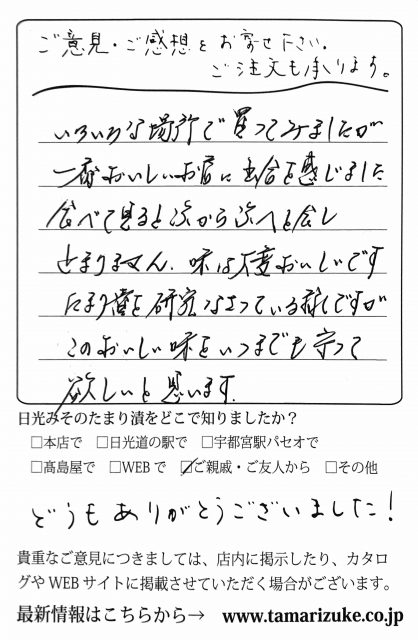 ご意見・ご感想をお寄せ下さい。
ご注文も承ります。
いろいろな場所で買ってみましたが
一番おいしいお店に出合を感じました
食べて見ると次から次へと食し
とまりません。味は大変おいしいです
たまり漬を研究なさっている様ですが
このおいしい味をいつまでも守って
欲しいと思います。
日光みそのたまり漬をどこで知りましたか?
□本店で □日光道の駅で □宇都宮駅パセオで
□髙島屋で □WEBで ☑ご親戚・ご友人から □その他
どうもありがとうございました!
貴重なご意見につきましては、店内に掲示したり、カタロ
グやWEBサイトに掲載させていただく場合がございます。
最新情報はこちらから→ www.tamarizuke.co.jp